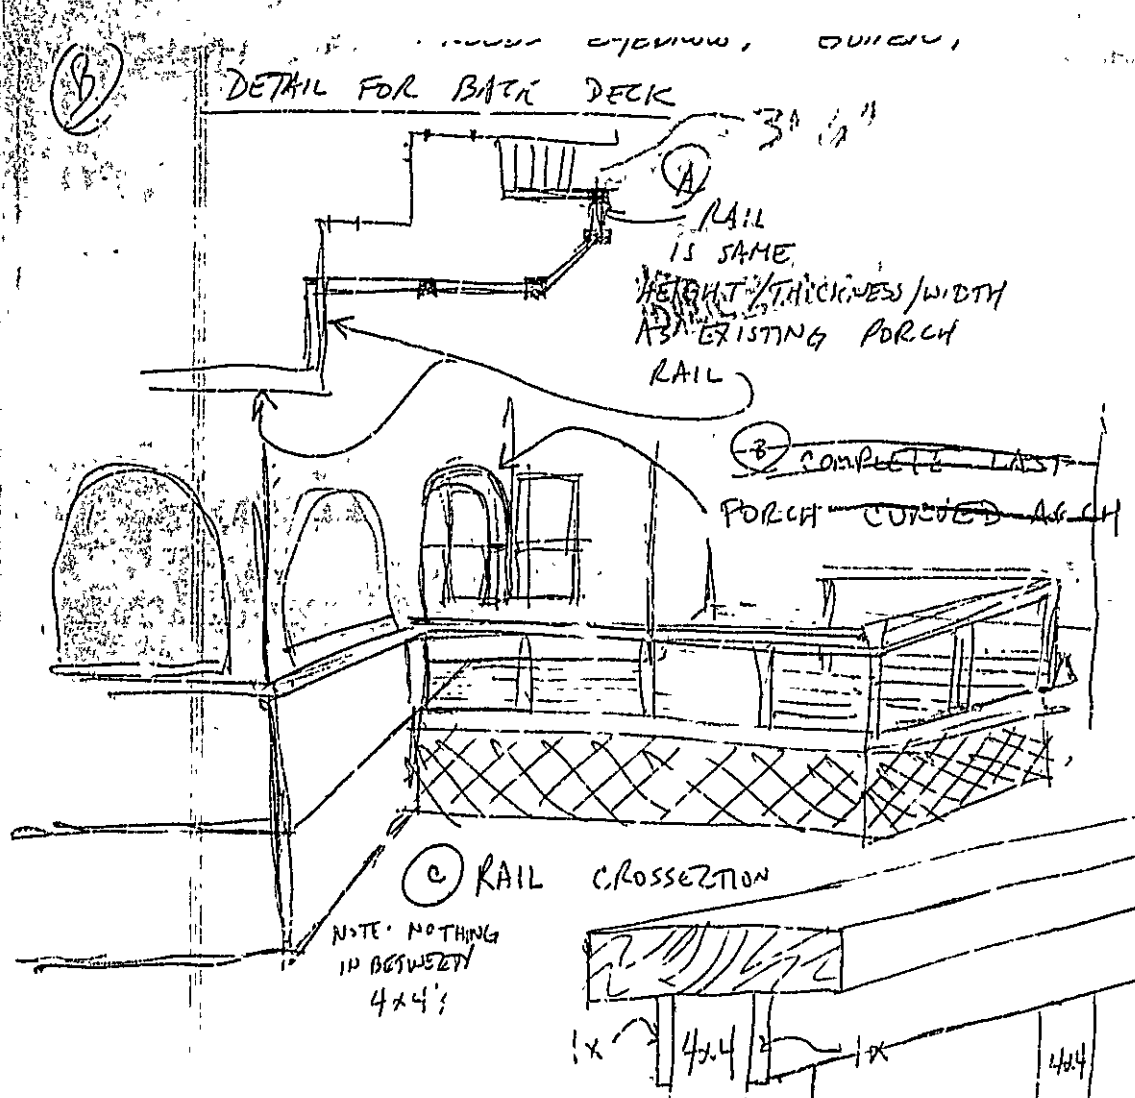 B
DETAIL FOR BACK DECK
A
RAIL
IS SAME
HEIGHT/THICKNESS/WIDTH
AS EXISTING PORCH
RAIL
B COMPLETE LAST
PORCH CURVED ARCH
C RAIL CROSSECTION
NOTE: NOTHING
IN BETWEEN
4x4's
1x 4x4 1x
4x4